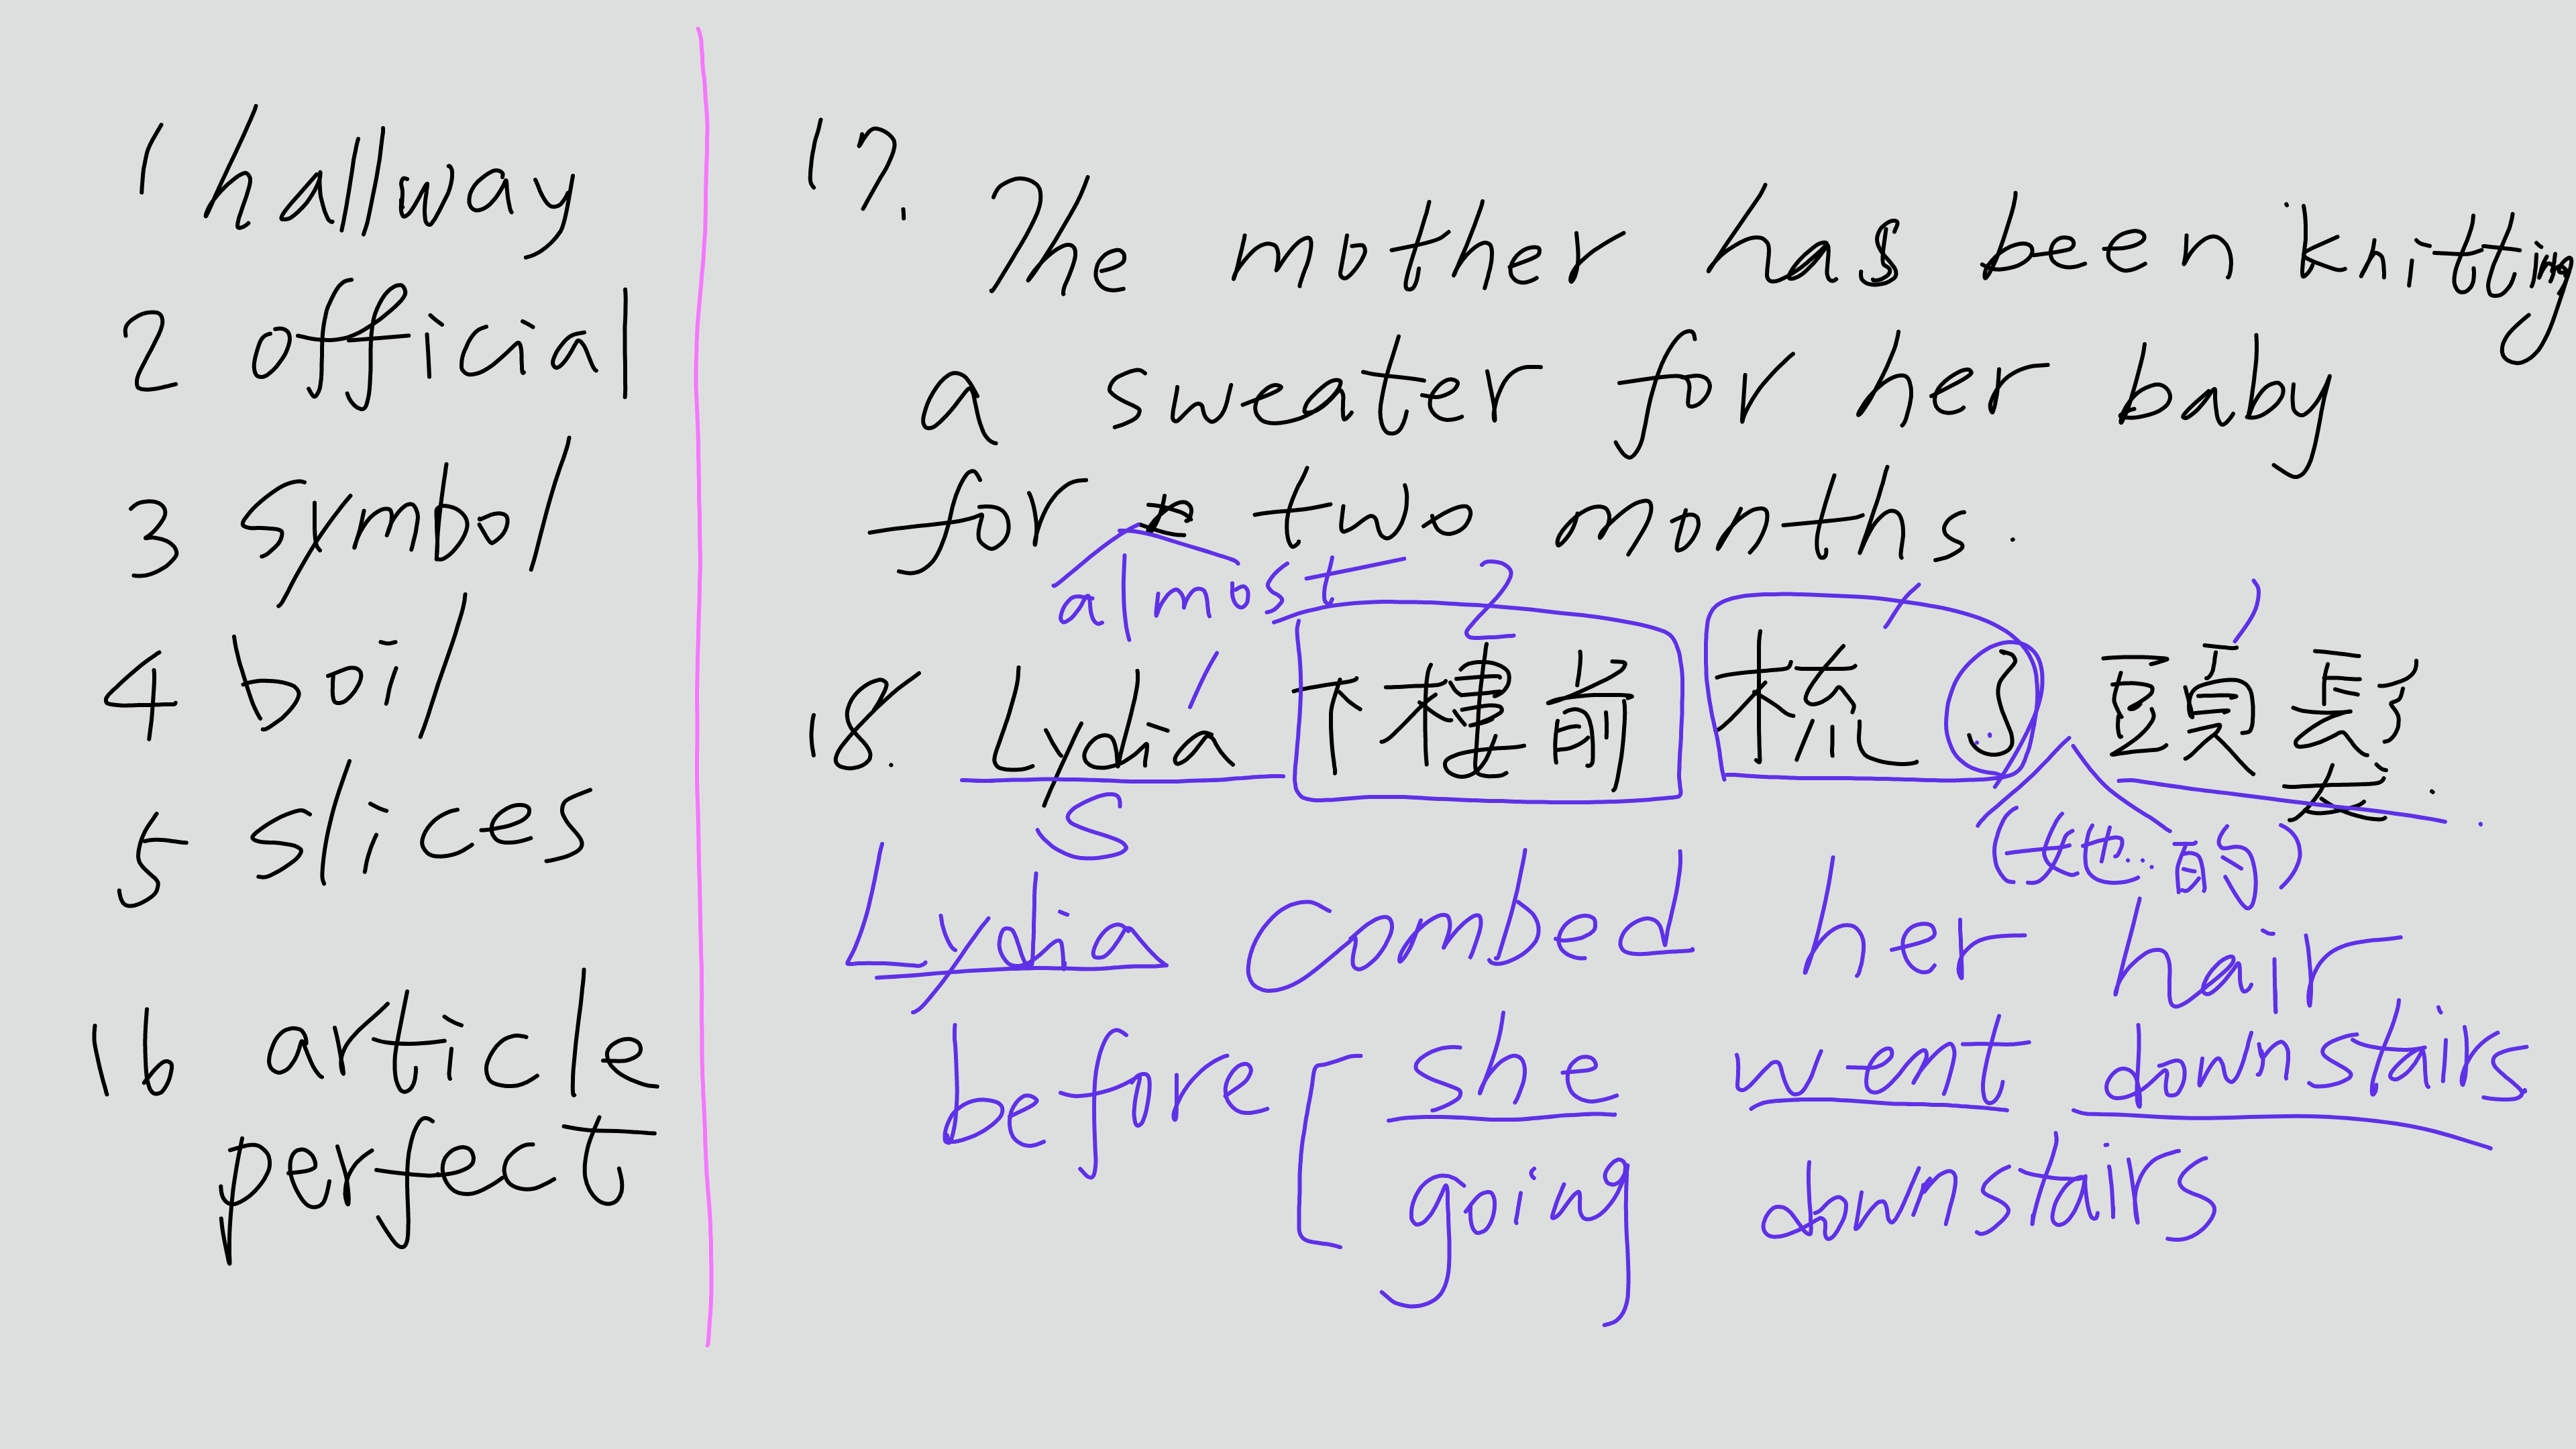 1 hallway
2 official
3 symbol
4 boil
5 slices
16 article
perfect
17. The mother has been knitting
a sweater for her baby
for two months.
almost
2
18. Lydia 下樓前 梳了 頭髮.
S
(她的)
Lydia combed her hair
before she went downstairs
going downstairs